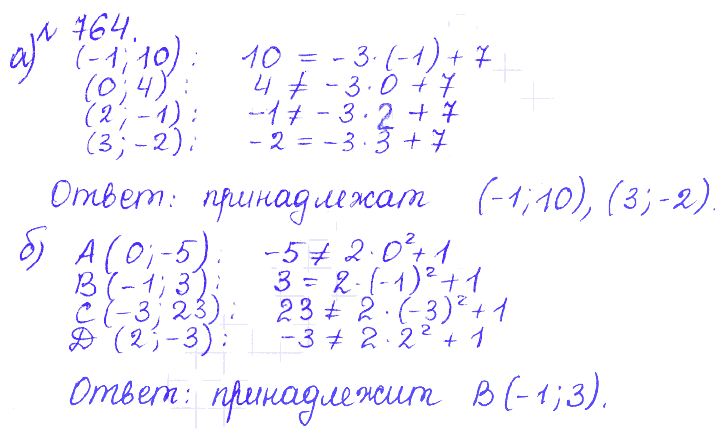 № 764.
а) (-1; 10): 10 = -3·(-1)+7
(0; 4): 4 ≠ -3·0+7
(2; -1): -1 ≠ -3·2+7
(3; -2): -2 = -3·3+7
Ответ: принадлежат (-1; 10), (3; -2).
б) A (0; -5): -5 ≠ 2·0²+1
B (-1; 3): 3 = 2·(-1)²+1
C (-3; 23): 23 ≠ 2·(-3)²+1
D (2; -3): -3 ≠ 2·2²+1
Ответ: принадлежит B (-1; 3).